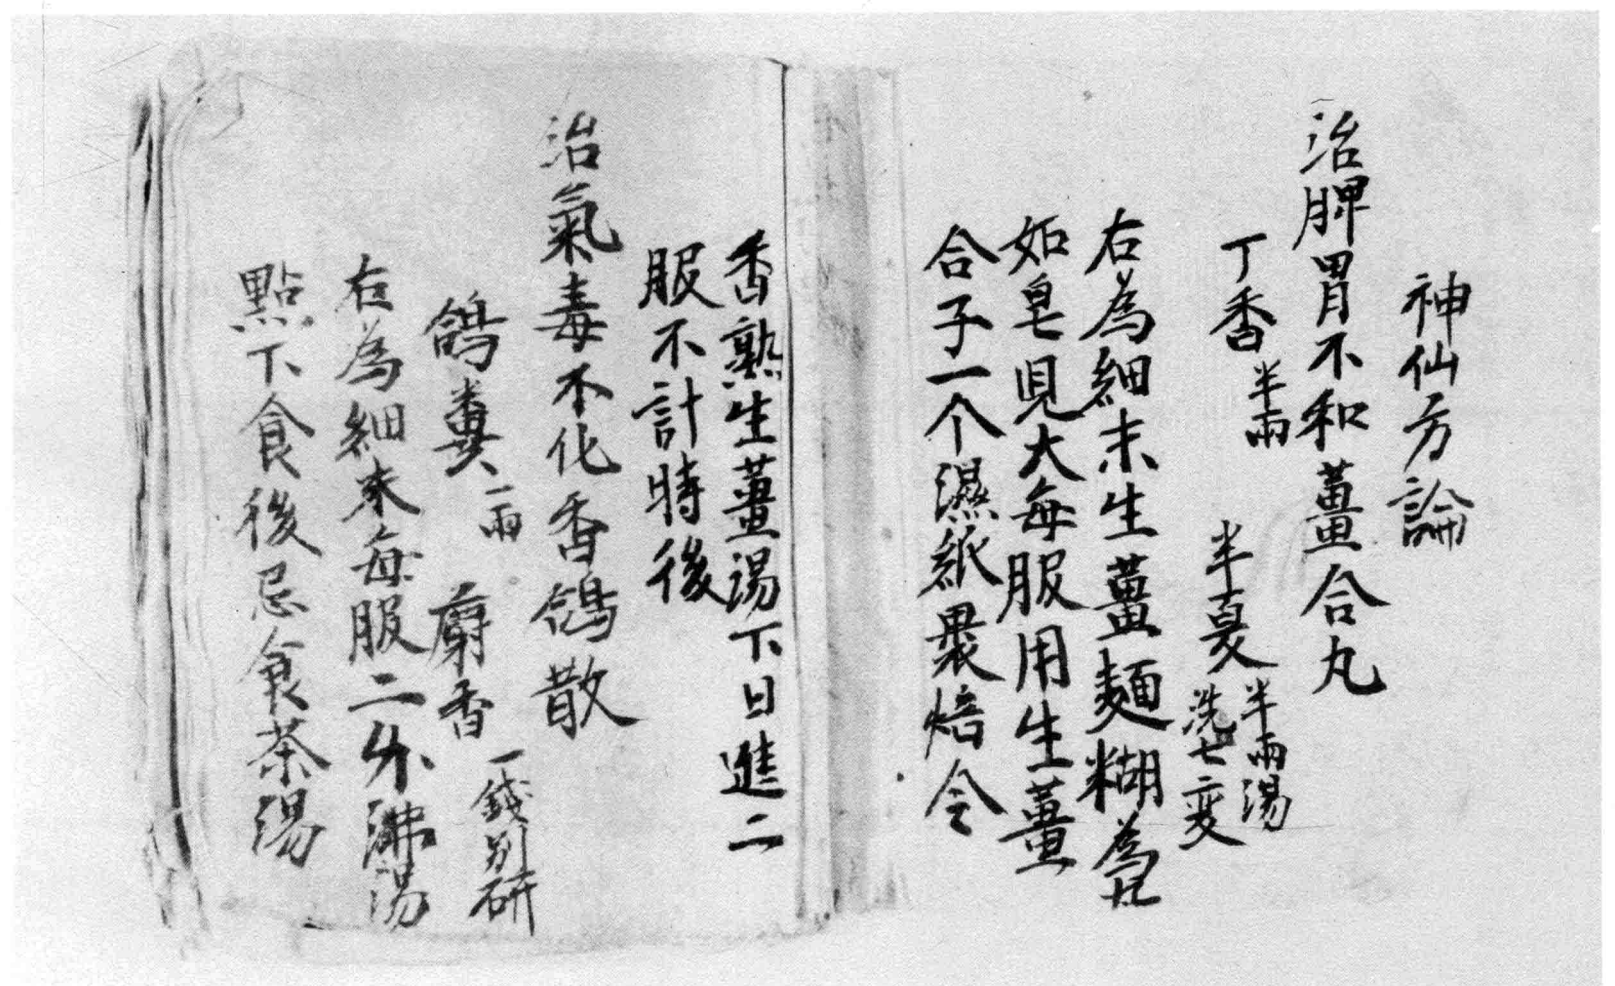 神仙方論
治脾胃不和薑合丸
丁香半兩 半夏半兩湯洗七变
右為細末生薑麺糊為丸
如皂皃大每服用生薑
合子一个濕紙裹焙令
香熟生薑湯下日進二
服不計時後
治氣毒不化香鴿散
鴿糞一兩 麝香一錢别研
右為細末每服二分沸湯
點下食後忌食茶湯